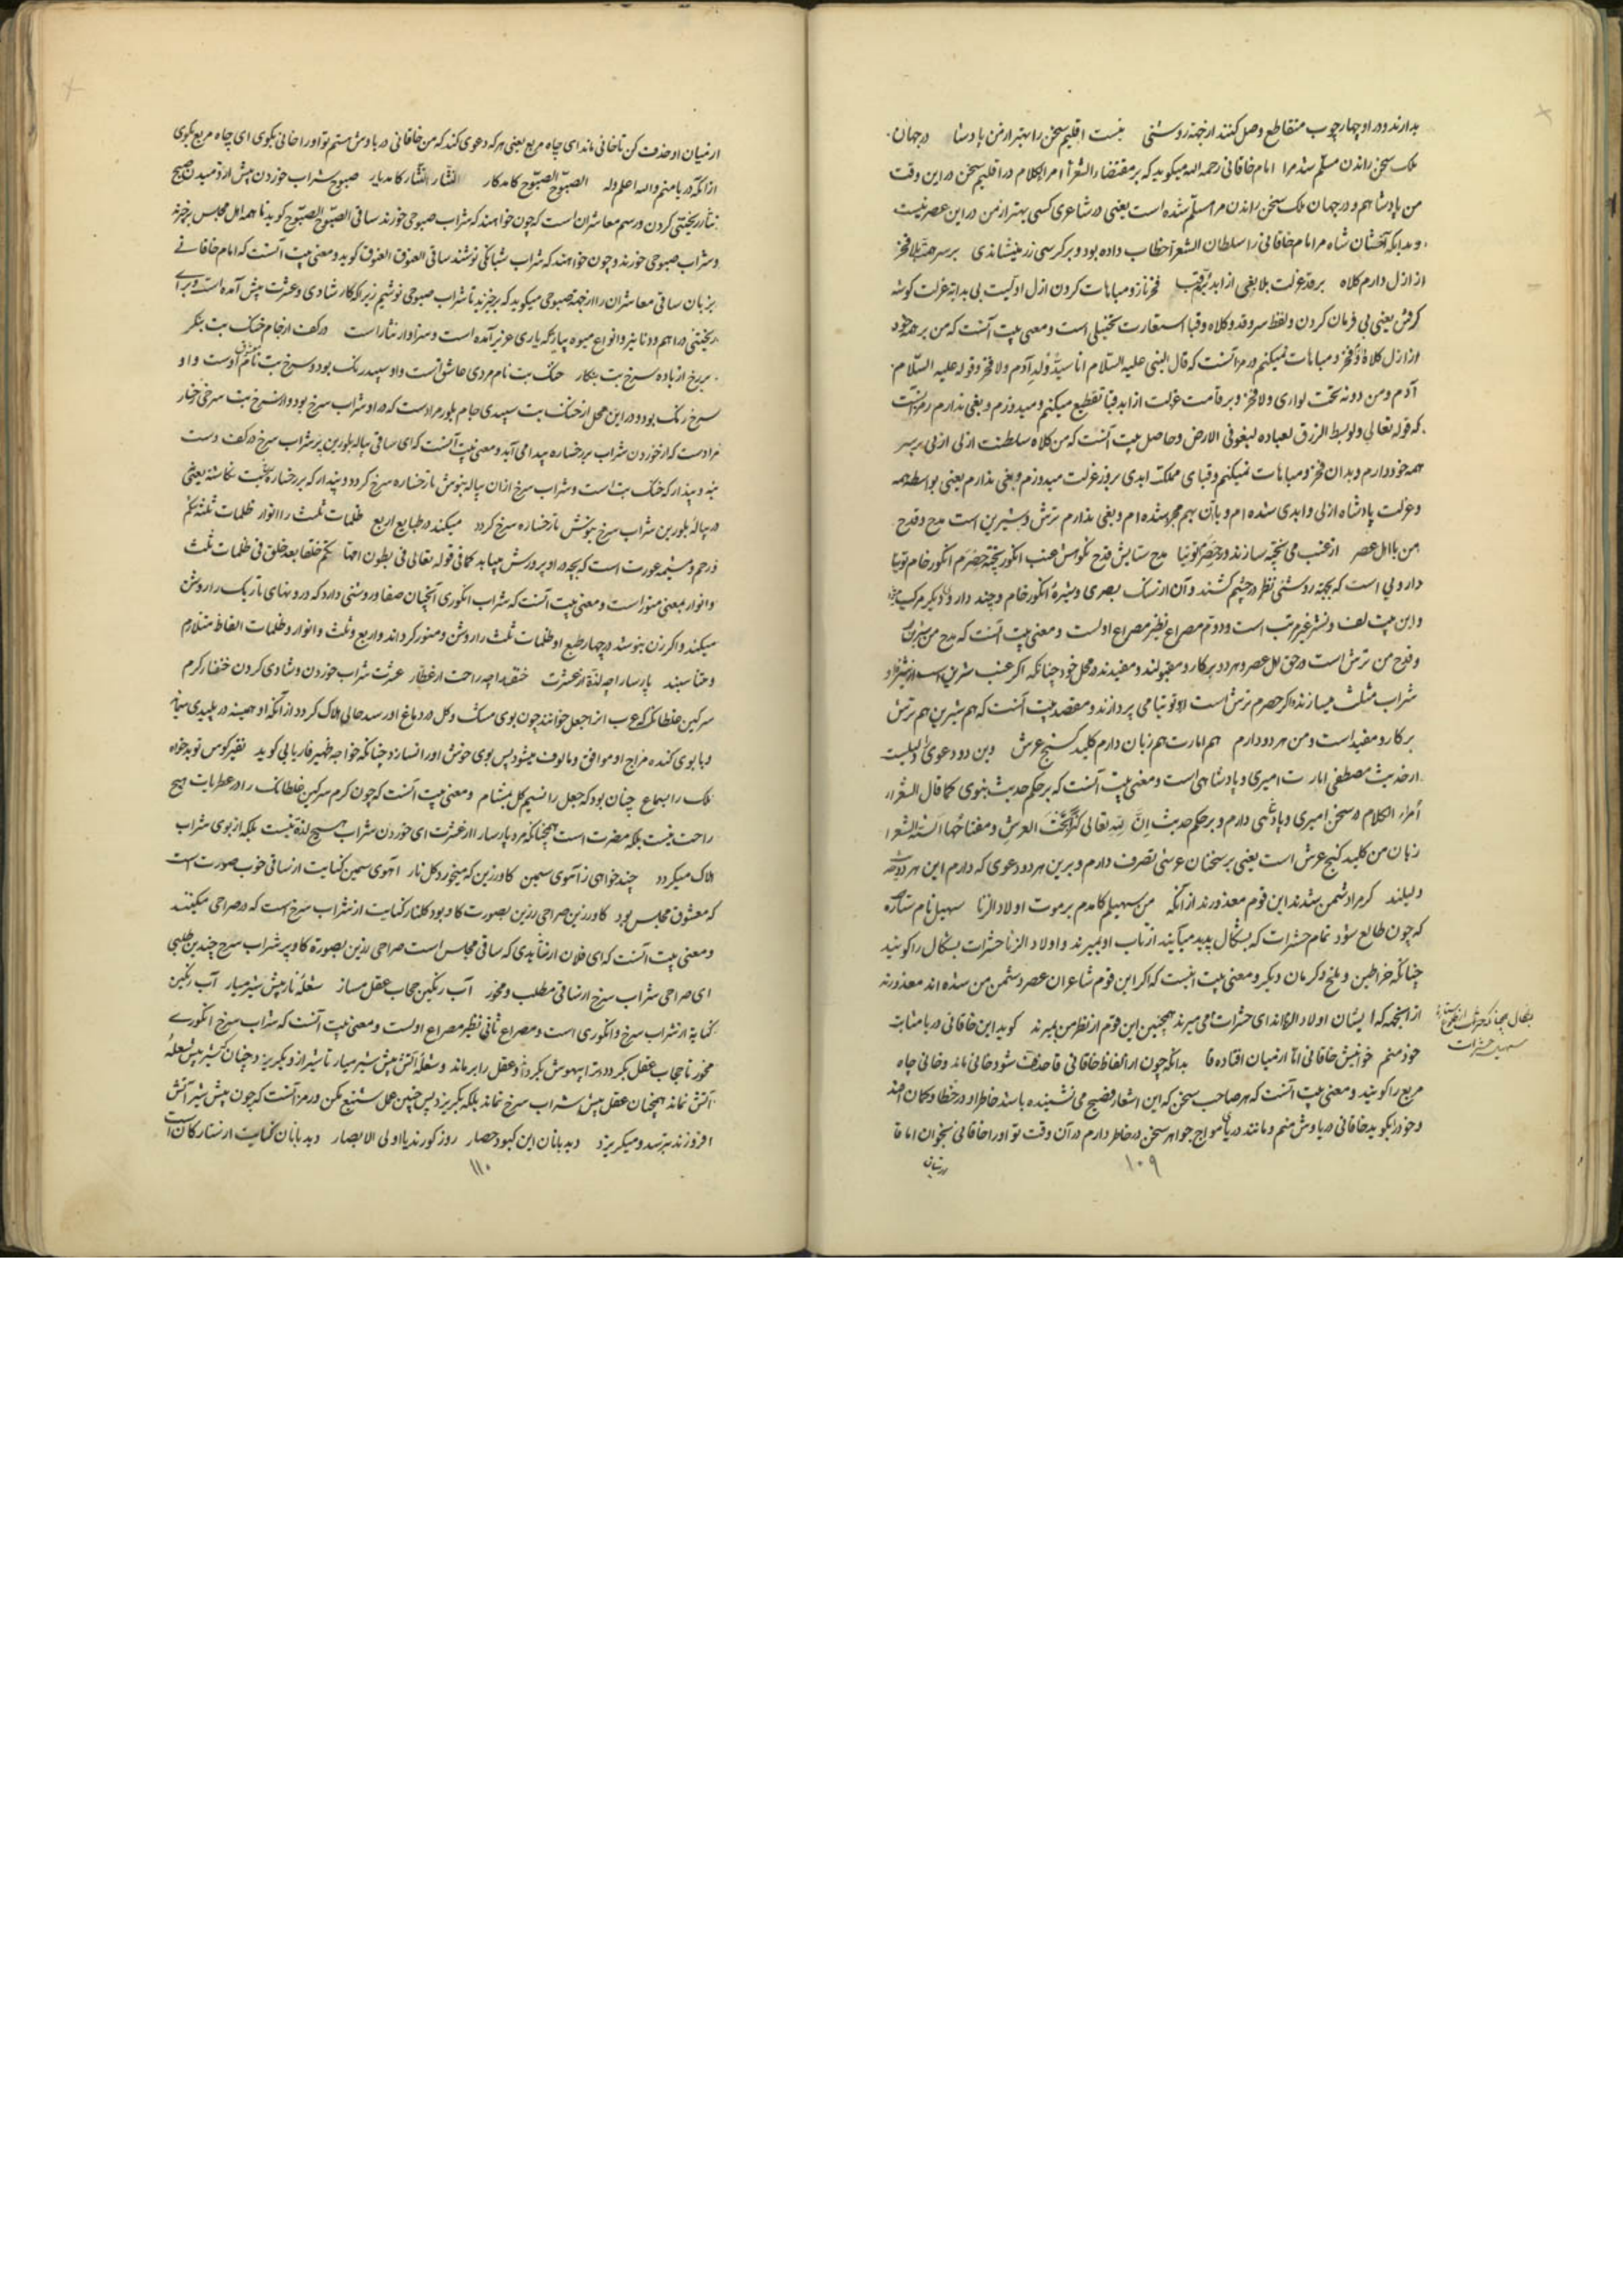 بدارند و در او چهار چوب متقاطع وصل کنند از جهة روشنی نیست اقلیم سخن را بهتر از من پادشا در جهان
ملک سخن راندن مسلم شد مرا امام خاقانی رحمه الله میکوید که بر مقتضاء الشعرآء امرآء الکلام در اقلیم سخن در این وقت
من پادشاهم و در جهان ملک سخن راندن مرا مسلم شده است یعنی در شاعری کسی بهتر از من در این عصر نیست
و بدانکه شاه مر امام خاقانی را سلطان الشعرآ خطاب داده بود و بر کرسی زر مینشاندی بر سر همت بلا فخر
از ازل دارم کلاه بر قد عزلت بلا بغی از ابد فخر ناز و مباهات کردن ازل اولیت بی بدایة عزلت کوشه
کرفتن یعنی بی فرمان کردن و لفظ سر و قد و کلاه و قبا استعارت تخییلی است و معنی بیت آنست که من بر همت خود
از ازل کلاه و فخر و مباهات نمیکنم و رمز آنست که قال النبی علیه السلام انا سید ولد آدم ولا فخر و قوله علیه السلام
آدم و من دونه تحت لوائی ولا فخر و بر قامت عزلت از ابد قبا تقطیع میکنم و میدوزم و بغی ندارم رمز آنست
که قوله تعالی ولو بسط الرزق لعباده لبغوا فی الارض و حاصل بیت آنست که من کلاه سلطنت ازلی از لی بر سر
همه خود دارم و بدان فخر و مباهات نمیکنم و قبای مملکت ابدی بر وز عزلت میدوزم و بغی ندارم یعنی بواسطه همه
و عزلت پادشاه ازلی و ابدی شده ام و بآن بهم شده ام و بغی ندارم ترش و شیرین است مدح و قدح
من با اهل عصر از عنب می پخته سازند و ز حصرم توتیا مدح ستایش قدح نکوهش عنب انکور پخته حصرم انکور خام توتیا
داروئی است که بجهة روشنی نظر در چشم کشند و آن از سنک بصری و شیرهٔ انکور خام و چند دارو دیکر مرکب
و این بیت لف و نشر غیر مرتب است و دوم مصراع نظیر مصراع اولست و معنی بیت آنست که مدح من شیرین
و قدح من ترش است در حق اهل عصر و هر دو پرکار و مقبولند و مفیدند در محل خود چنانکه اکر عنب شیرین است
شراب مثلث میسازند و اکر حصرم ترش است ازو توتیا می پردازند و مقصد بیت آنست که هم شیرین هم ترش
برکار و مفید است و من هر دو دارم هم امارت هم زبان دارم کلید کنج عرش وین دو دعوی را دلیلست
از حدیث مصطفی امارت امیری و پادشاهی است و معنی بیت آنست که بر حکم حدیث نبوی کما قال الشعرآء
أمراء الکلام در سخن امیری و پادشاهی دارم و بر حکم حدیث انّ لله تعالی کنزا تحت العرش و مفتاحها السنة الشعرا
زبان من کلید کنج عرش است یعنی بر سخنان عرشی تصرف دارم و برین هر دو دعوی که دارم این هر دو حدیث
دلیلند کر مرا دشمن شدند این قوم معذورند از آنکه من سهیلم کآمدم بر موت اولاد الزنا سهیل نام ستاره
که چون طالع شود تمام حشرات که بشکال پدید میآیند از تاب او بمیرند و اولاد الزنا حشرات بشکال را کویند
چنانکه خراطین و ملخ و کرمان دیکر و معنی بیت اینست که اکر این قوم شاعران عصر دشمن من شده اند معذورند
از اینجهة که ایشان اولاد الزنااند ای حشرات می میرند همچنین این قوم از نظر من بمیرند کوید این خاقانی دریا مثابت
خود منم خوانمش خاقانی اما از میان افتاده قا بدانکه چون از الفاظ خاقانی قا حذف شود خانی ماند و خانی چاه
مربع را کویند و معنی بیت آنست که هر صاحب سخن که این اشعار فصیح می شنیده باشد خاطر او در خطا و کمان افتد
و خود را کوید خاقانی دریا وش منم و مانند دریای مواج جواهر سخن در خاطر دارم در آن وقت تو او را خاقانی نخوان اما قا
از میان
۱۰۹
سهیل حشرات
از میان او حذف کن تا خانی ماند ای چاه مربع یعنی هر که دعوی کند که من خاقانی دریاوش هستم تو او را خانی بکوی ای چاه مربع بکوی
از آنکه دریا منم والله اعلم وله الصبوح الصبوح کآمد کار النثار النثار کآمد یار صبوح شراب خوردن پیش از دمیدن صبح
نثار ریختنی کردن و رسم معاشران است که چون خواهند که شراب صبوحی خورند ساقی الصبوح الصبوح کوید تا همه اهل مجلس برخیزند
و شراب صبوحی خورند و چون خواهند که شراب شبانکی نوشند ساقی الغبوق الغبوق کوید و معنی بیت آنست که امام خاقانی
بزبان ساقی معاشران را از جهة صبوحی میکوید که برخیزید تا شراب صبوحی نوشیم زیرا که کار شادی و عشرت پیش آمده است و برای
ریختنی دراهم و دنانیر و انواع میوه بیارید که یاری عزیز آمده است و سزاوار نثار است در کف از جام خنک بت بنکر
بر رخ از باده سرخ بت بنکار خنک بت نام مردی عاشق است و او سپید رنک بود و سرخ بت نام معشوق اوست و او
سرخ رنک بود و در این محل از خنک بت سپیدی جام بلور مرادست که در او شراب سرخ بود و از سرخ بت سرخی رخسار
مرادست که از خوردن شراب بر رخساره پیدا می آید و معنی بیت آنست که ای ساقی پیالهٔ بلورین پر شراب سرخ در کف دست
بنه و بپندار که خنک بت است و شراب سرخ از آن پیاله بنوش تا رخساره سرخ کردد و بپندار که بر رخساره سرخ بت نکاشته یعنی
در پیالهٔ بلورین شراب سرخ بنوش تا رخساره سرخ کردد میکند در طبایع اربع ظلمات ثلث را انوار ظلمات ثلثه شکم
و رحم و مشیمهٔ عورت است که بچه در او پرورش مییابد کما فی قوله تعالی فی بطون امهاتکم خلقا بعد خلق فی ظلمات ثلث
و انوار بمعنی منور است و معنی بیت آنست که شراب انکوری آنچنان صفا و روشنی دارد که درونهای تاریک را روشن
میکند و اکر زن بنوشد در چهار طبع او ظلمات ثلث را روشن و منور کرداند و اربع و ثلث و انوار و ظلمات الفاظ متلازم
و متناسبند پارسا را چه لذة از عشرت خنفسا را چه راحت از عطار عشرت شراب خوردن و شادی کردن خنفسا کرم
سرکین غلطانک که عرب آنرا جعل خوانند چون بوی مشک و کل در دماغ او رسد حالی هلاک کردد از آنکه او همیشه در پلیدی میماند
و با بوی کنده مزاج او موافق و مألوف میشود پس بوی خوش او را نسازد چنانکه خواجه ظهیر فاریابی کوید نفیر کوس تو بدخواه
ملک را بسماع چنان بود که جعل را نسیم کل بمشام و معنی بیت آنست که چون کرم سرکین غلطانک را در عطریات هیچ
راحت نیست بلکه مضرت است همچنانکه مرد پارسا را از عشرت ای خوردن شراب هیچ لذة نیست بلکه از بوی شراب
هلاک میکردد چند خواهی ز آهوی سیمین کاو زرین که میخورد کل نار آهوی سیمین کنایت از ساقی خوب صورت است
که معشوق مجلس بود کاو زرین صراحی زرین بصورت کاو بود کلنار کنایت از شراب سرخ است که در صراحی میکنند
و معنی بیت آنست که ای فلان از شاهدی که ساقی مجلس است صراحی زرین بصورة کاو پر شراب سرخ چندین طلبی
ای صراحی شراب سرخ از ساقی مطلب و مخور آب رنکین حجاب عقل مساز شعلهٔ نار پیش شیر میار آب رنکین
کنایه از شراب سرخ و انکوری است و مصراع ثانی نظیر مصراع اولست و معنی بیت آنست که شراب سرخ انکوری
مخور تا حجاب عقل نکردد و ترا بیهوش نکرداند و عقل را برماند و شعلهٔ آتش پیش شیر میار تا شیر از او بکریزد و چنان که شیر پیش شعلهٔ
آتش نماند همچنان عقل پیش شراب سرخ نماند بلکه بکریزد پس چنین عمل شنیع مکن و رمز آنست که چون پیش شیر آتش
افروزند بترسد و میکریزد دیدبانان این کبود حصار روز کورند یا اولی الابصار دیدبانان کنایت از ستارکان است
۱۱۰